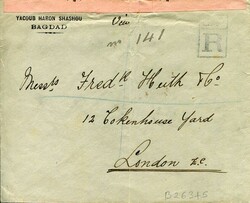 YACOUB HARON SHASHOU
BAGDAD
No 141
R
Messrs Fredk Huth & Co
12 Tokenhouse Yard
London E.C.
B26345